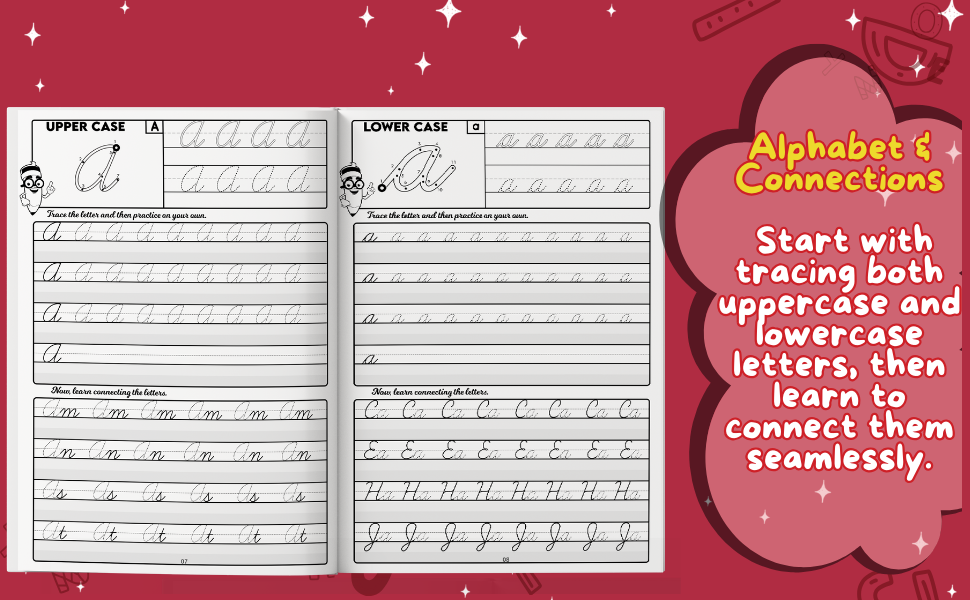 UPPER CASE A
A A A A
A A A A
Trace the letter and then practice on your own.
A A A A A A A A A
A A A A A A A A A
A A A A A A A A A
A
Now, learn connecting the letters.
Am Am Am Am Am Am
An An An An An An
As As As As As As
At At At At At At
07
LOWER CASE a
a a a a a
a a a a a
Trace the letter and then practice on your own.
a a a a a a a a a a a
a a a a a a a a a a a
a a a a a a a a a a a
a
Now, learn connecting the letters.
Ca Ca Ca Ca Ca Ca Ca Ca
Ea Ea Ea Ea Ea Ea Ea Ea
Ha Ha Ha Ha Ha Ha Ha Ha
Ja Ja Ja Ja Ja Ja Ja Ja
08
Alphabet &
Connections
Start with
tracing both
uppercase and
lowercase
letters, then
learn to
connect them
seamlessly.